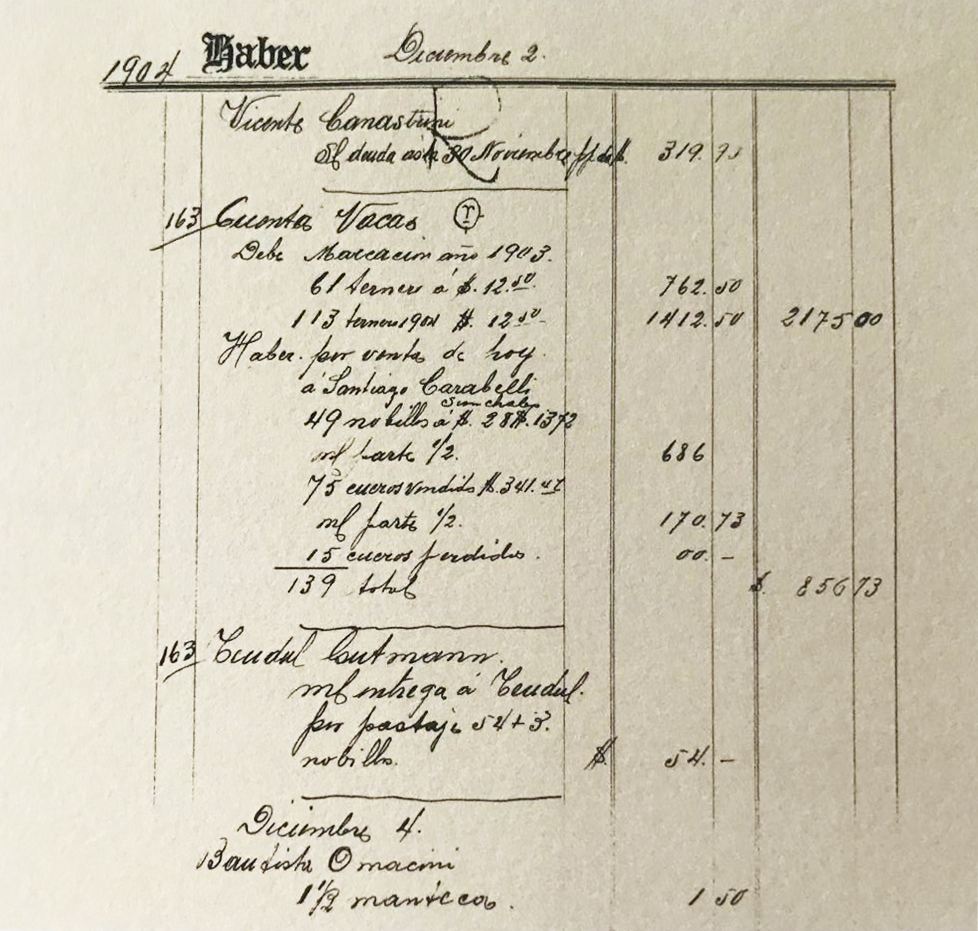 1904 Haber Diciembre 2.
Vicente Canastrini
deuda asta 30 Noviembre 319.
163 Cuenta Vacas
Debe Marcacion año 1903.
61 ternero á $. 12.50
762.50
113 ternero 1904 $. 12 50 1412.50 2175 00
Haber. por venta de hoy
á Santiago Carabelli
Sunchales
49 nobillos á $. 28 $. 1372
parte 1/2. 686
75 cueros vendido $. 341.47
parte 1/2. 170.73
15 cueros perdidos. 00. -
139 total $ 856 73
163 Teudul Gutmann.
entrega á Teudul.
por pastaje 54 + 3.
nobillos. $ 54. -
Diciembre 4.
Bautista Omacini
1 1/2 manteca. 1 50